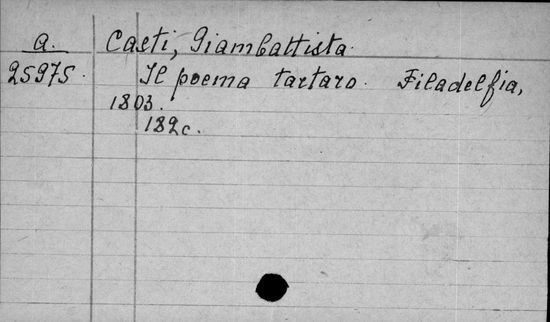 a. Casti, Giambattista.
25975. Il poema tartaro. Filadelfia,
1803.
182c.